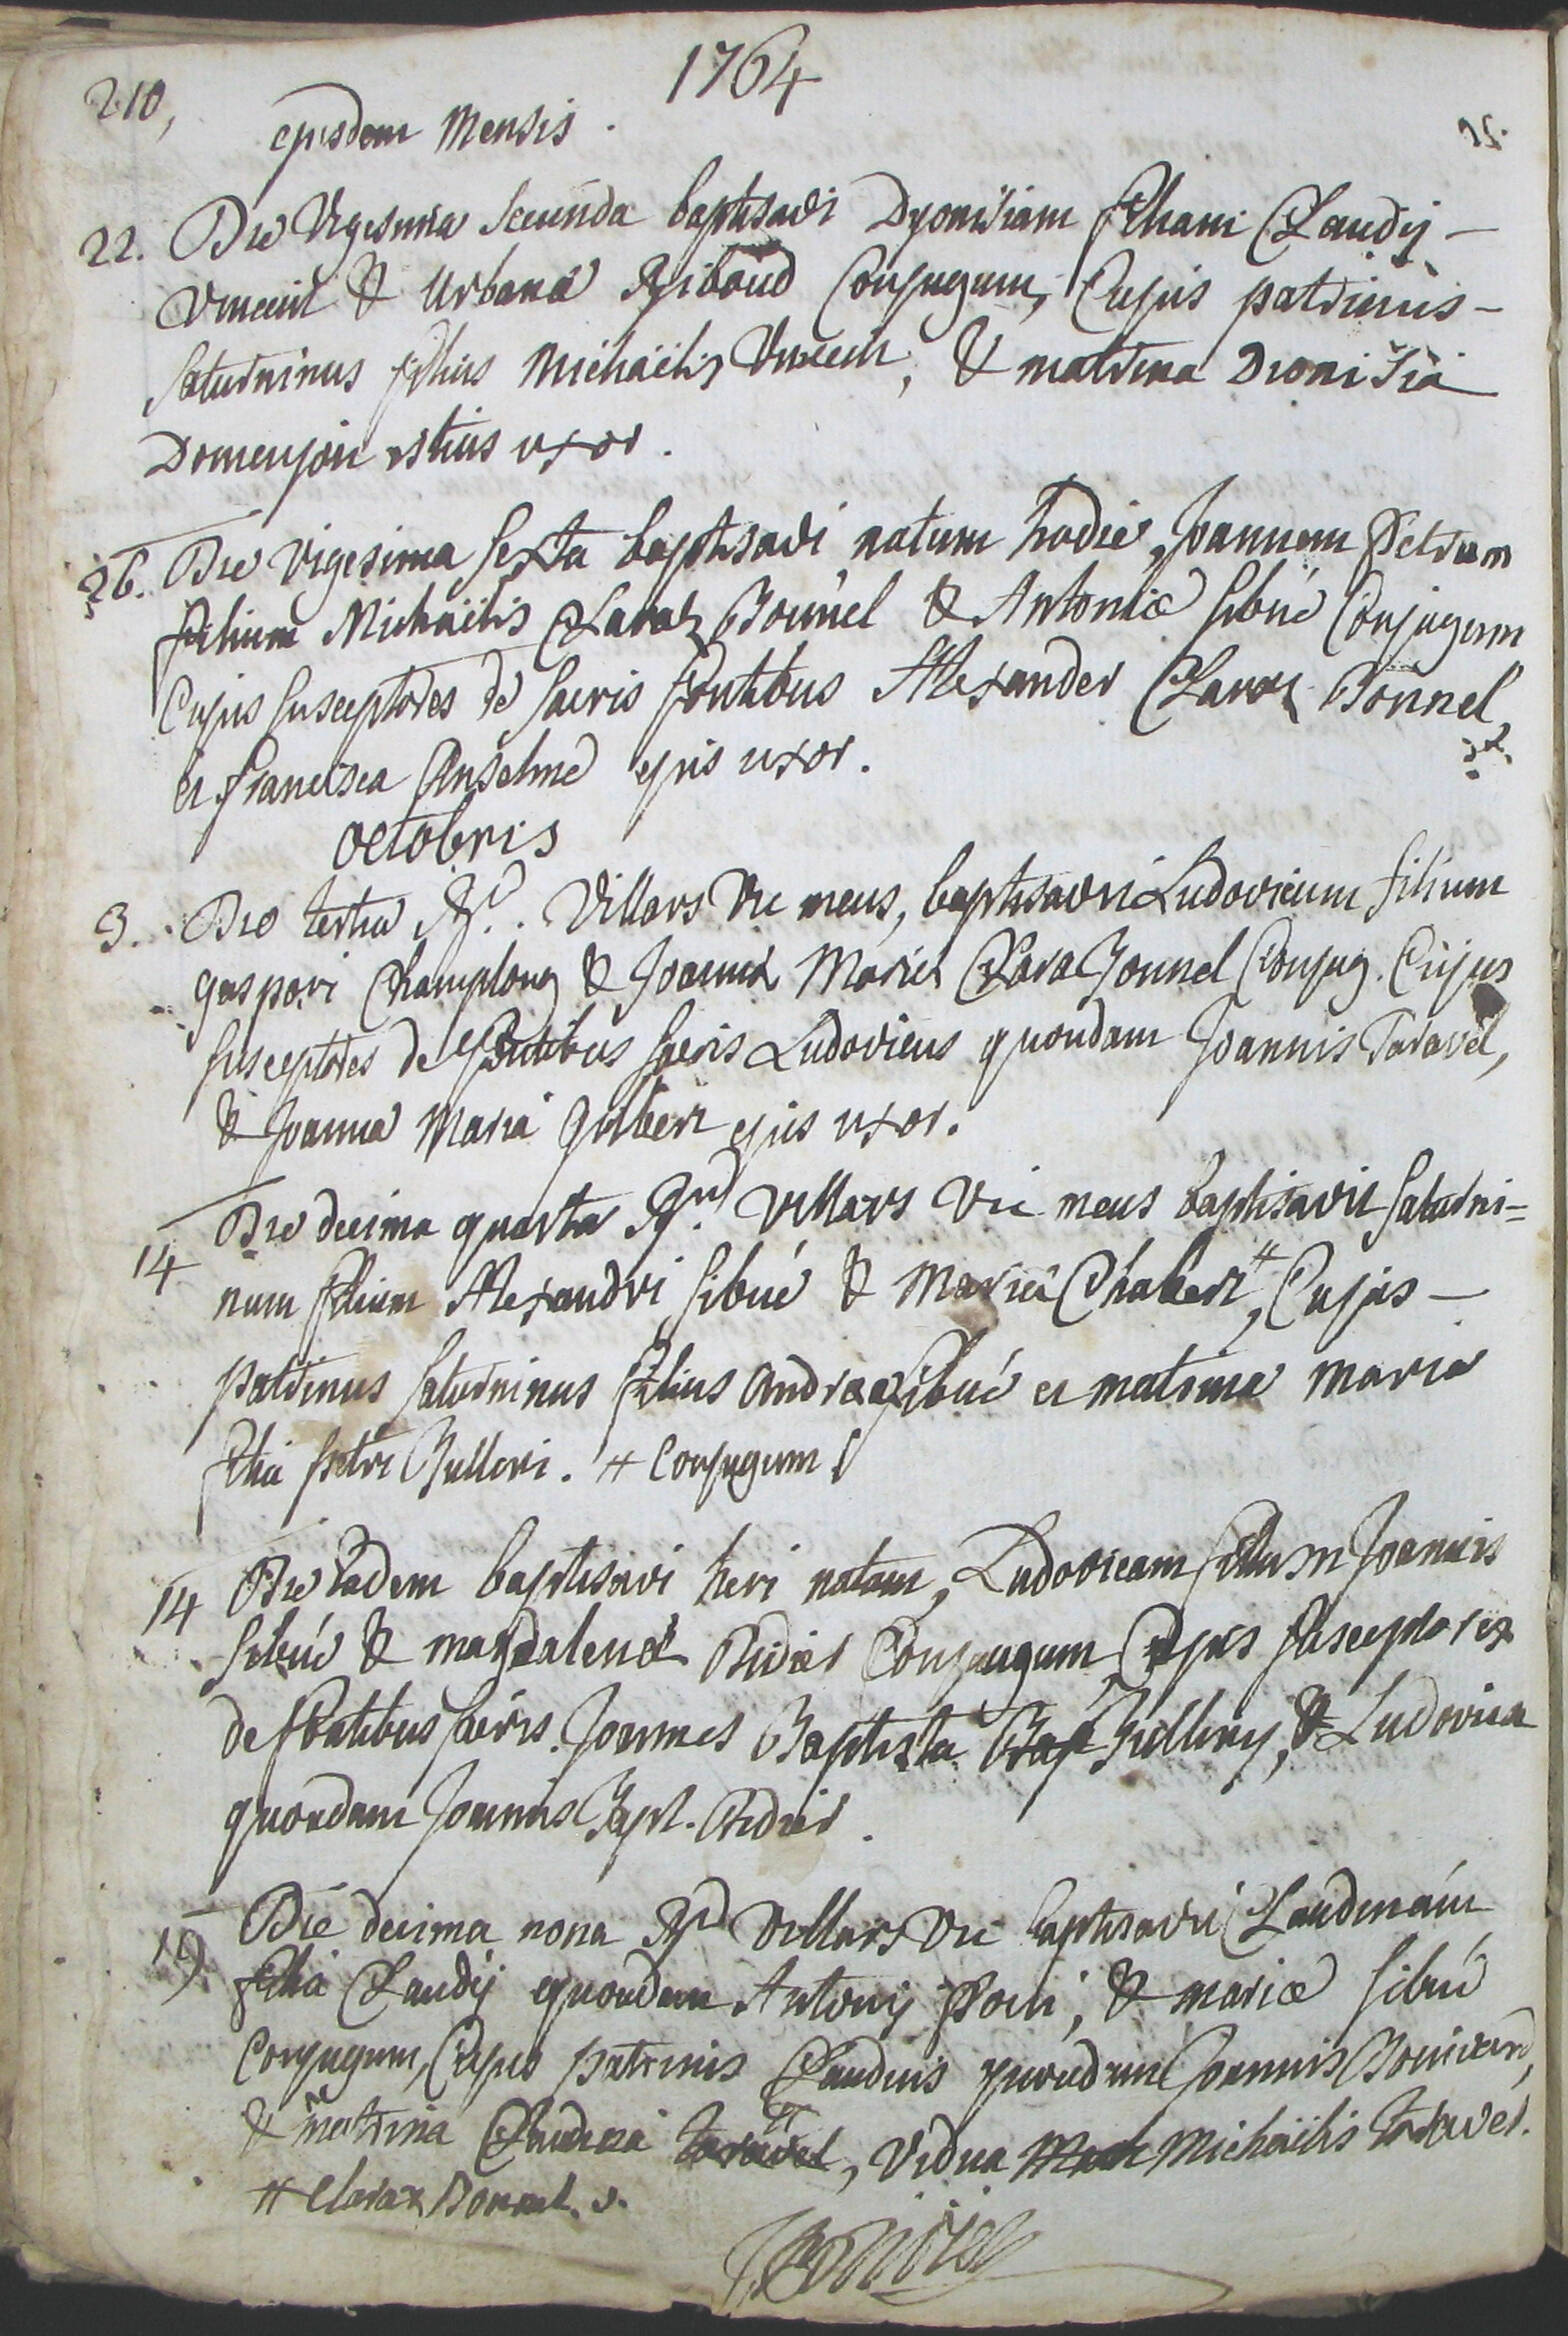 1764
210,
ejusdem Mensis.
22. Die Vigesima Secunda baptisavi Dyonisiam filiam Claudij -
Vincent & Urbanæ Ribaud Conjugum, Cujus patrinus -
Saturninus filius Michaëlis Vincent, & matrina Dionisia
Domenjon istius uxor.
26. Die vigesima Sexta baptisavi natum hodie, Joannem Petrum
filium Michaëlis Claraz Bonnel & Antoniæ Sibué Conjugum
Cujus Susceptores de Sacris fontibus Alexander Claraz Bonnel,
et francisca Anselme ejus uxor.
octobris
3. Die tertia Rd. Villars Vic meus, baptisavit Ludovicum filium
gaspari Champlong & Joannæ Mariæ Clara Bonnel Conjug. Cujus
Susceptores de fontibus Sacris Ludovicus quondam Joannis Taravel,
& Joanna Maria gilbert ejus uxor.
14 Die decima quarta Rd. Villars Vic meus baptisavit Saturni=
num filium Alexandri Sibué & Mariæ Chabert #, Cujus -
patrinus Saturninus filius Andreæ Sibué et matrina Maria
filia petri Bulleri. # Conjugum
14 Die Eadem baptisavi heri natam, Ludovicam filiam Joannis
Sibué & magdalenæ Didier Conjugum Cujus Susceptores
de fontibus Sacris. Joannes Baptista Bap , & Ludovica
quondam Joannis Bapt. Didier.
19 Die decima nona Rd Villars Vic baptisavit Claudinam
filia Claudij quondam Antonij , & mariæ Sibué
Conjugum, Cujus patrinus Claudius quondam Joannis Bonivard,
& matrina Claudia taravel #, Vidua Mich Michaëlis taravel.
# Claraz Bonnel.